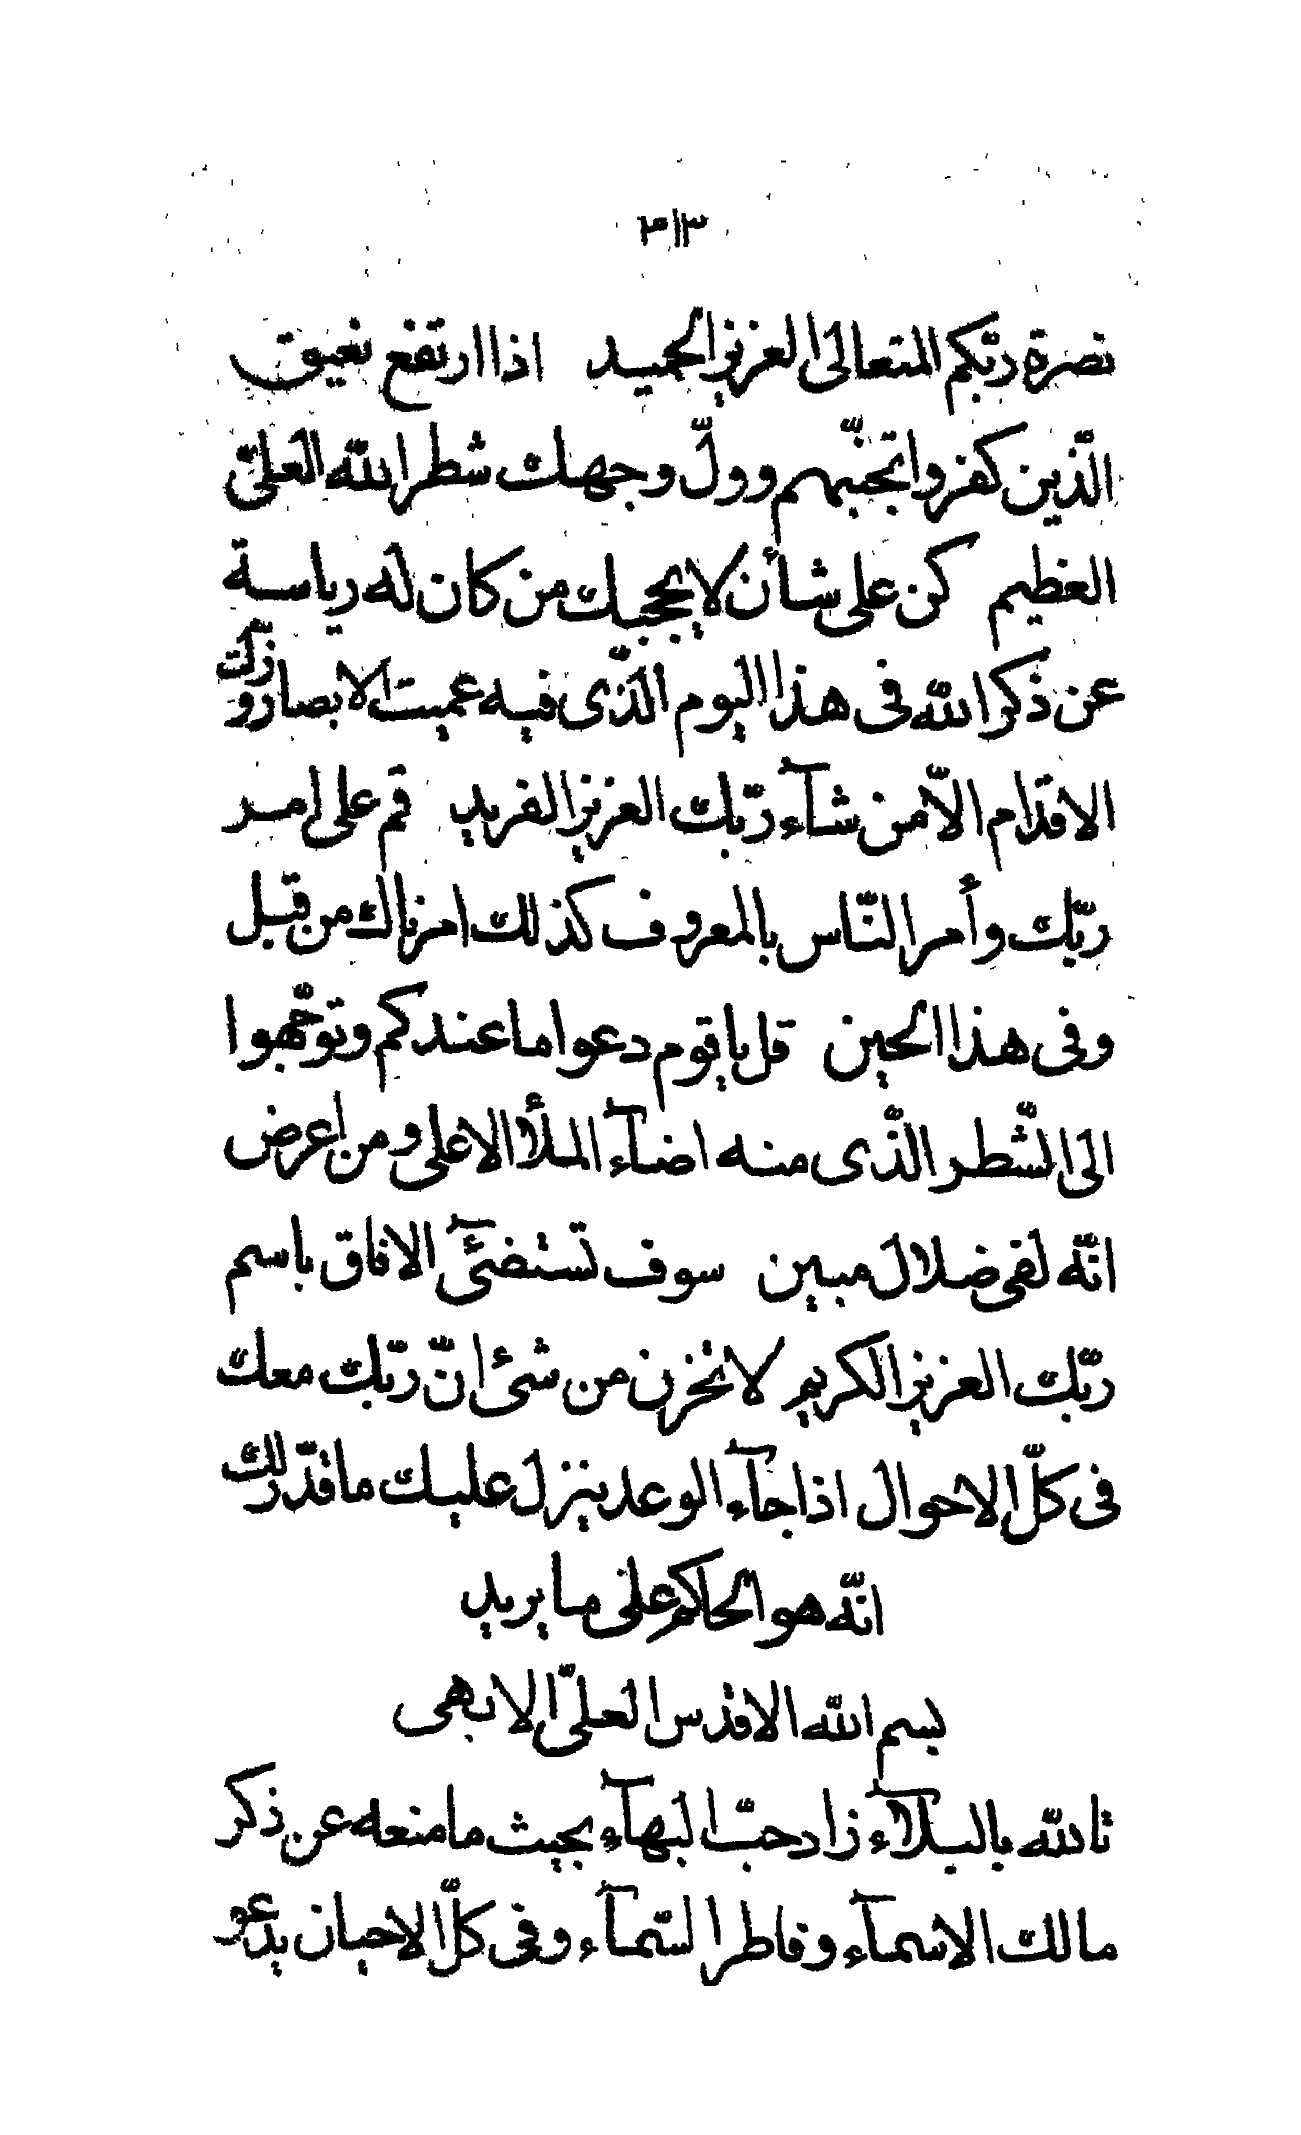 ٣١٣
نصرة ربّكم المتعالی العزیز الحمید اذا ارتفع نعیق
الّذین کفروا تجنّبهم وولّ وجهك شطر الله العلیّ
العظیم کن علی شأن لا یحجبك من کان له ریاسة
عن ذکر الله فی هذا الیوم الّذی فیه عمیت الابصار و زلّت
الاقدام الّا من شآء ربّك العزیز الفرید قم علی امر
ربّك وأمر النّاس بالمعروف کذلك امرناك من قبل
وفی هذا الحین قل یا قوم دعوا ما عندکم وتوجّهوا
الی الشّطر الّذی منه اضآء الملأ الاعلی و من اعرض
انّه لفی ضلال مبین سوف تستضئ الافاق باسم
ربّك العزیز الکریم لا تحزن من شئ انّ ربّك معك
فی کلّ الاحوال اذا جآء الوعد ینزل علیك ما قدّر لك
انّه هو الحاکم علی ما یرید
بسم الله الاقدس العلیّ الابهی
تالله بالبلآء زاد حبّ البهآء بحیث ما منعه عن ذکر
مالك الاسمآء وفاطر السّمآء وفی کلّ الاحیان یدعو